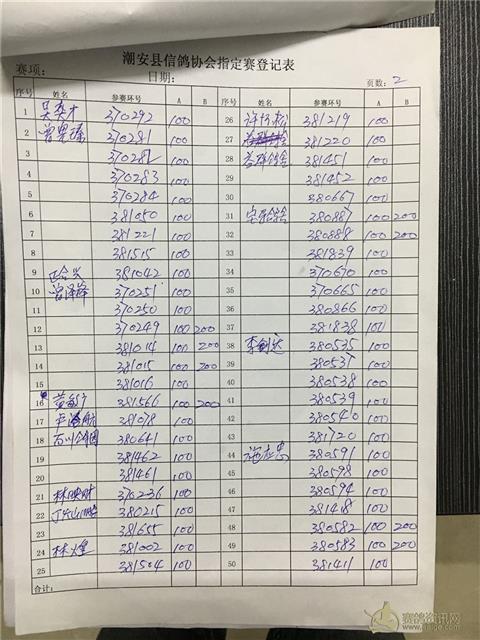 潮安县信鸽协会指定赛登记表
赛项： 日期： 页数：2
序号 姓名 参赛环号 A B 序号 姓名 参赛环号 A B
1 370292 100 26 381219 100
2 370281 100 27 381220 100
3 370282 100 28 381451 100
4 370283 100 29 381452 100
5 370284 100 30 380667 100
6 381050 100 31 380887 100 200
7 381221 100 32 380888 100 200
8 381515 100 33 381839 100
9 381042 100 34 370670 100
10 曾泽锋 370251 100 35 370665 100
11 370250 100 36 380866 100
12 370249 100 200 37 381838 100
13 381014 100 200 38 李剑达 380535 100
14 381015 100 200 39 380537 100
15 381016 100 40 380538 100
16 381566 100 200 41 380539 100
17 381078 100 42 380540 100
18 380641 100 43 381720 100
19 381462 100 44 380591 100
20 381461 100 45 380598 100
21 林映财 370236 100 46 380594 100
22 380215 100 47 381418 100
23 381655 100 48 380582 100 200
24 林煌 381002 100 49 380583 100 200
25 381504 100 50 381411 100
合计：
赛鸽资讯网